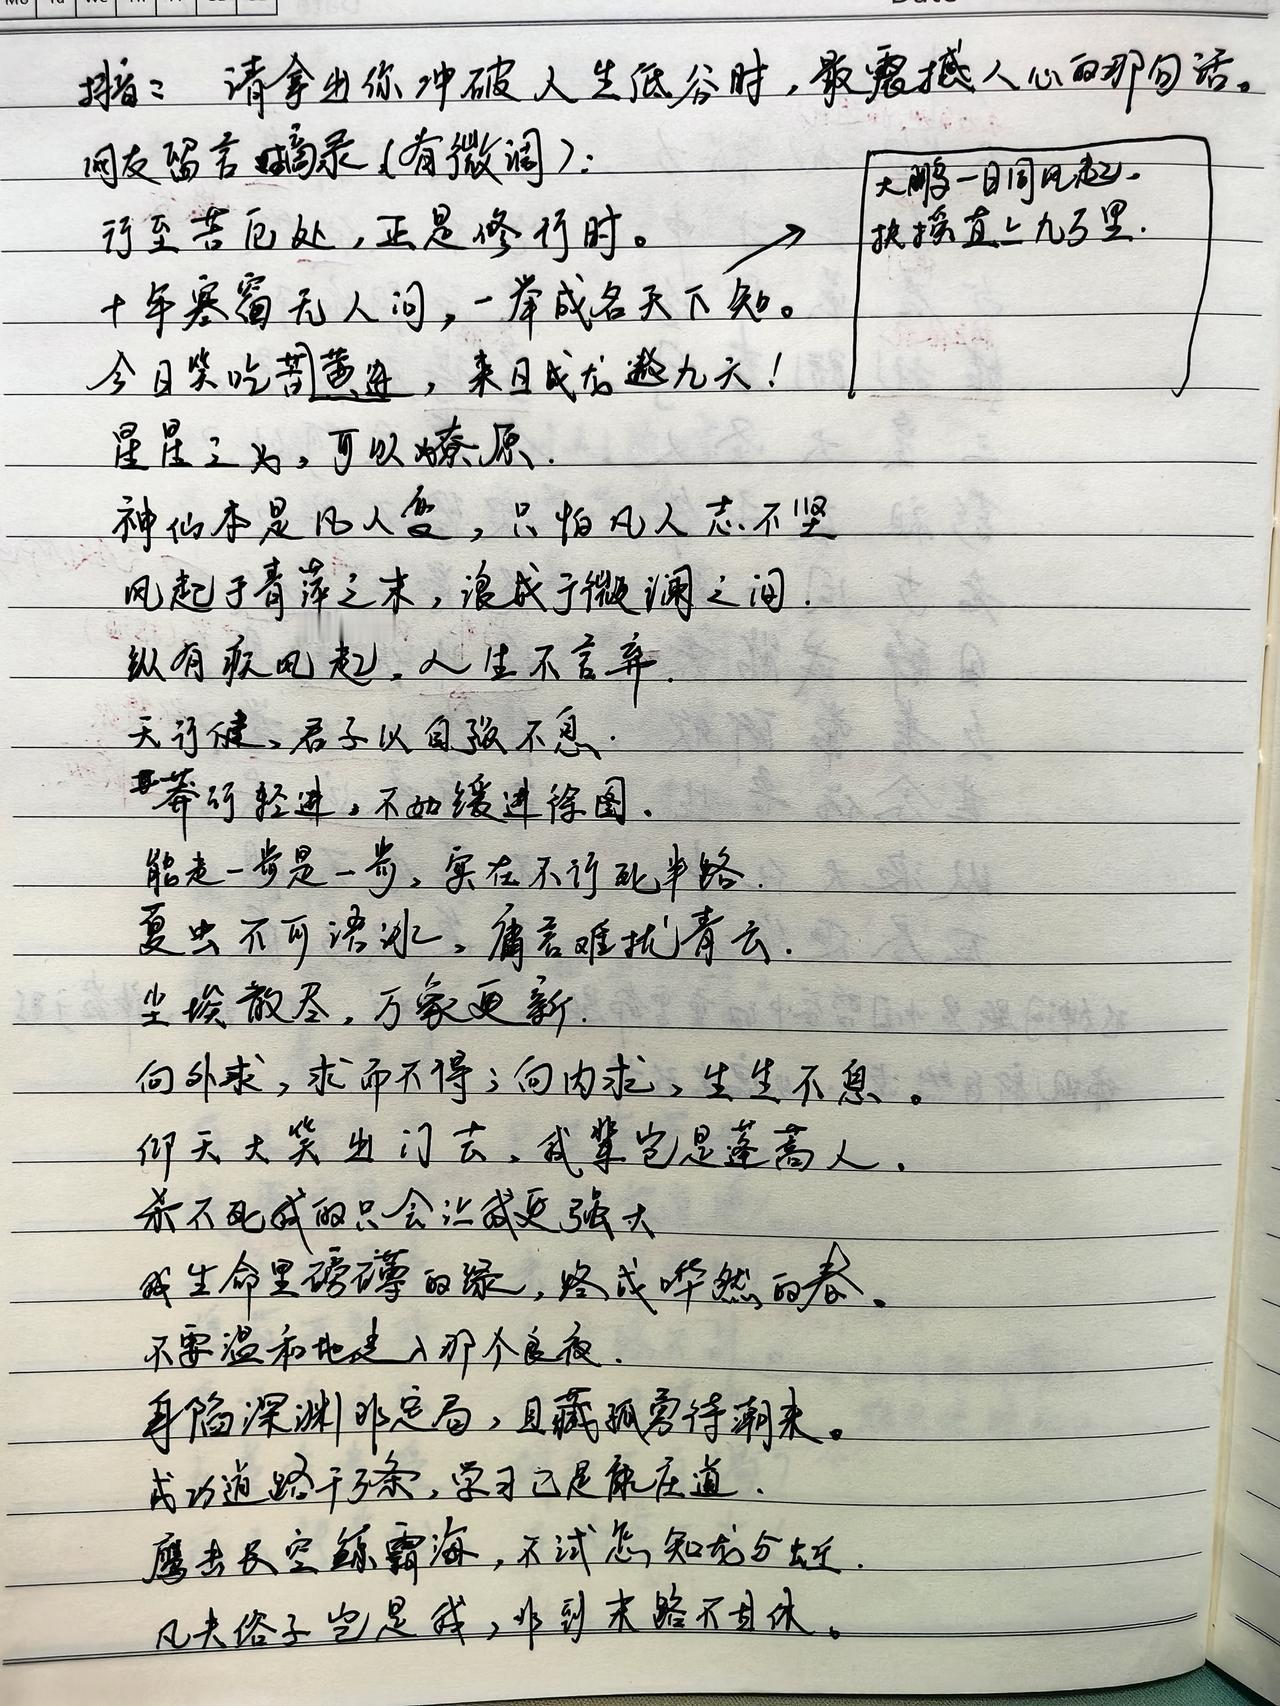 Mo Tu We Th Fr
Date
抖音： 请拿出你冲破人生低谷时，最震撼人心的那句话。
网友留言摘录（有微调）：
行至苦厄处，正是修行时。
十年寒窗无人问，一举成名天下知。
大鹏一日同风起，
扶摇直上九万里.
今日笑吃苦黄连，来日成龙遨九天！
星星之火，可以燎原.
神仙本是凡人变，只怕凡人志不坚
风起于青萍之末，浪成于微澜之间.
纵有疾风起，人生不言弃.
天行健，君子以自强不息.
莽行轻进，不如缓进徐图.
能走一步是一步，实在不行死半路.
夏虫不可语冰，庸言难扰青云.
尘埃散尽，万象更新.
向外求，求而不得；向内求，生生不息。
仰天大笑出门去，我辈岂是蓬蒿人.
杀不死我的只会让我更强大
我生命里磅礴的绿，终成哗然的春。
不要温和地走入那个良夜.
身陷深渊非定局，且藏孤勇待潮来。
成功道路千万条，学习已是康庄道.
鹰击长空鲸霸海，不试怎知龙分蚯.
凡夫俗子岂是我，非到末路不甘休。